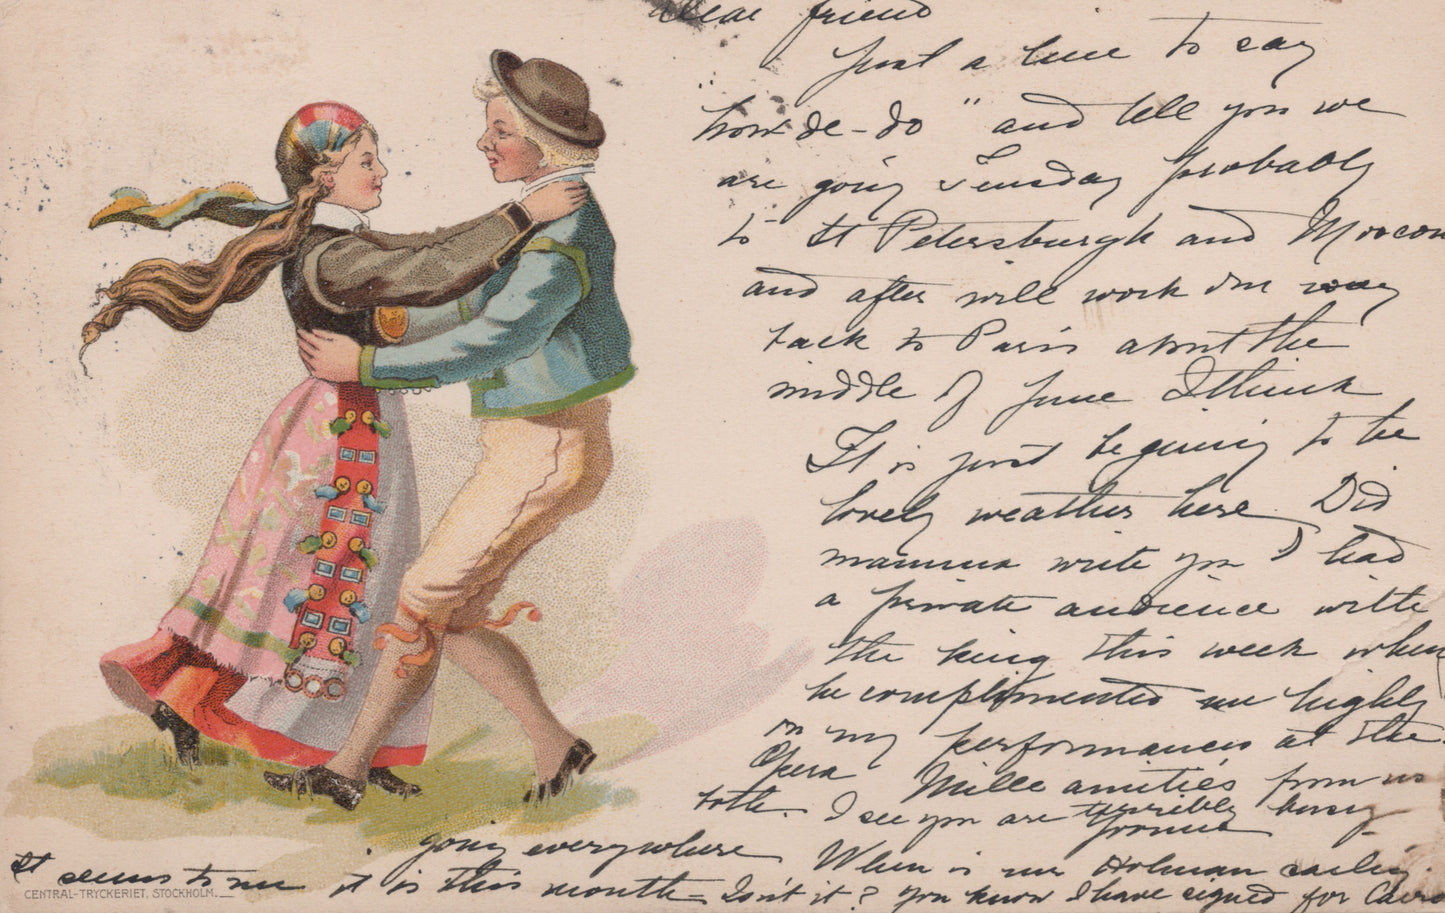 dear friend
Just a line to say
"how de-do" and tell you we
are going Teusday probably
to St Petersburgh and Moscow
and after will work our way
back to Paris about the
middle of June I think
It is just begining to be
lovely weather here. Did
mamma write you I had
a private audience with
the king this week when
he complimented me highly
on my performances at the
Opera Mille amitiés from us
both. I see you are terribly busy
Yvonne
going everywhere When is me Holman sailing
It seems to me it is this month = Isn't it? You know I have signed for Cairo
CENTRAL-TRYCKERIET, STOCKHOLM.